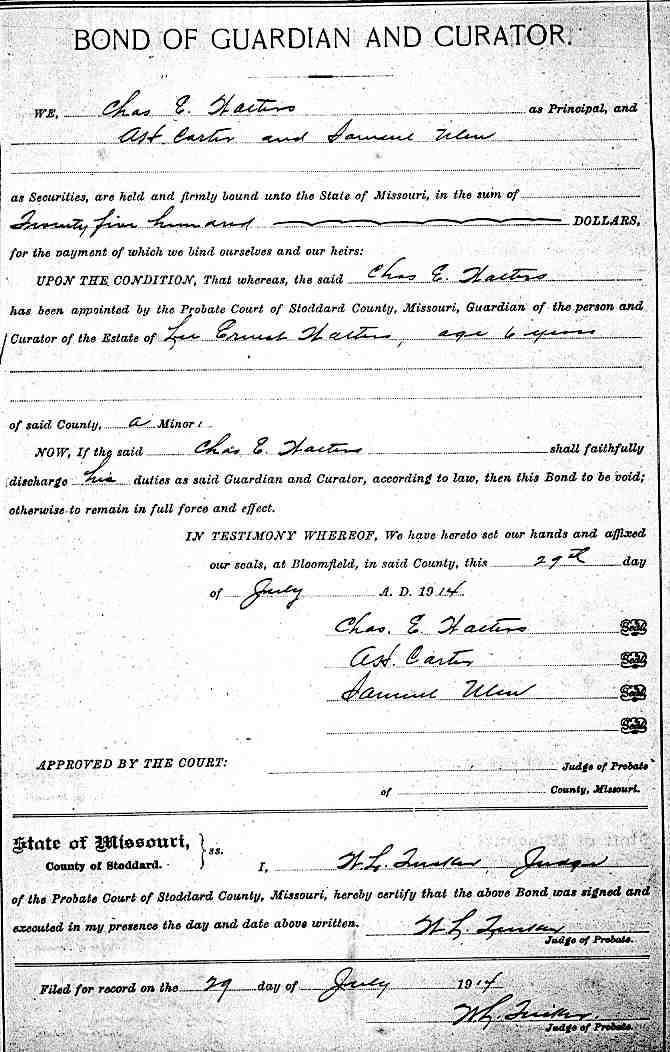 BOND OF GUARDIAN AND CURATOR.
WE, Chas E. Walters as Principal, and
A.H. Carter and Samuel Ulen
as Securities, are held and firmly bound unto the State of Missouri, in the sum of
Twenty five hundred DOLLARS,
for the payment of which we bind ourselves and our heirs:
UPON THE CONDITION, That whereas, the said Chas E. Walters
has been appointed by the Probate Court of Stoddard County, Missouri, Guardian of the person and
Curator of the Estate of Lee Ernest Walters, age 6 years
of said County, a Minor
NOW, If the said Chas E. Walters shall faithfully
discharge his duties as said Guardian and Curator, according to law, then this Bond to be void;
otherwise to remain in full force and effect.
IN TESTIMONY WHEREOF, We have hereto set our hands and affixed
our seals, at Bloomfield, in said County, this 29th day
of July A. D. 1914
Chas. E. Walters Seal
A.H. Carter Seal
Samuel Ulen Seal
Seal
APPROVED BY THE COURT: Judge of Probate
of County, Missouri.
State of Missouri, } ss.
County of Stoddard.
I, W L. Tucker, Judge
of the Probate Court of Stoddard County, Missouri, hereby certify that the above Bond was signed and
executed in my presence the day and date above written. W L. Tucker
Judge of Probate.
Filed for record on the 29 day of July 1914
W L. Tucker.
Judge of Probate.